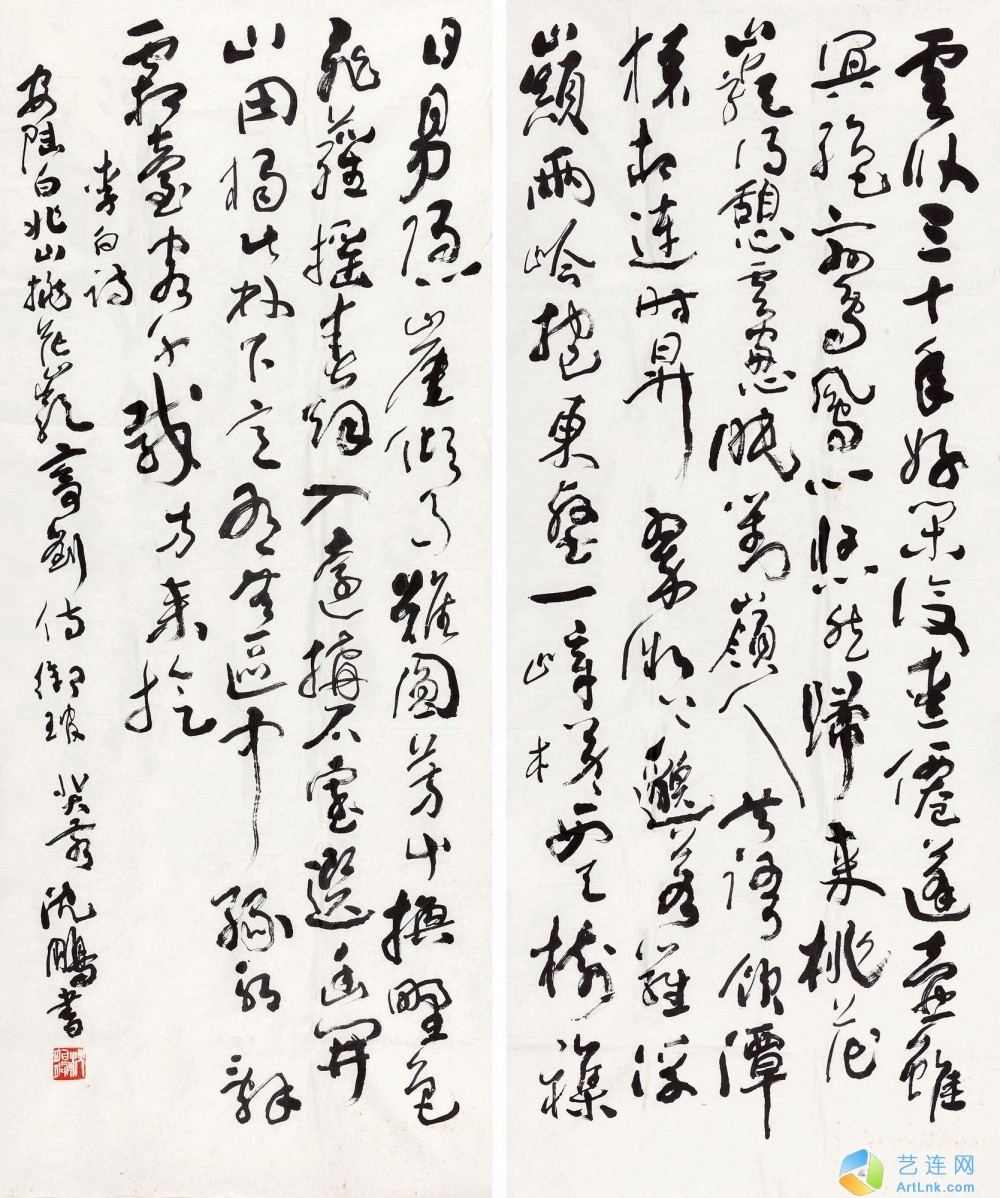 雲臥三十年好閑復愛僊蓬壺雖
冥絕鸞鳳心悠然歸來桃花
巖得憩雲窗眠對嶺人共語飲潭
猿相連時昇翠微上邈若羅浮
巔兩岑抱東壑一嶂橫西天樹雜
日易隱崖傾月難圓芳草換野色
飛蘿搖春烟入遠搆石室選幽開
山田獨此林下意杳無區中緣永辭
霜臺客千載方來旋
李白诗
安陆白兆山桃花巖寄劉侍御 沈鵬書
艺连网
ArtLnk.com